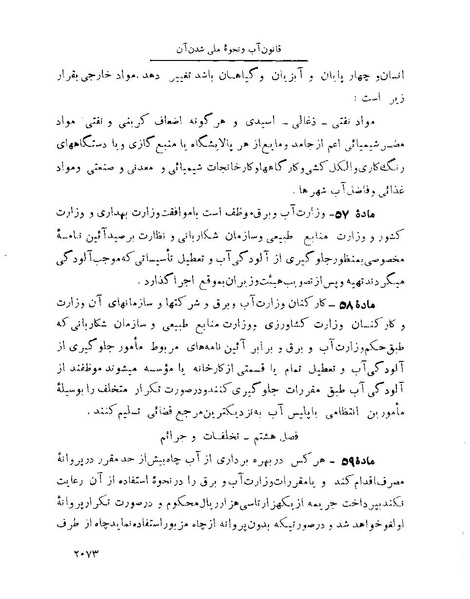 قانون آب و نحوهٔ ملی شدن آن
انسان و چهار پایان و آبزیان و گیاهان باشد تغییر دهد. مواد خارجی بقرار
زیر است :
مواد نفتی ـ ذغالی ـ اسیدی و هر گونه اضعاف کربنی و نفتی مواد
مضر شیمیائی اعم از جامد و مایع از هر پالایشگاه یا منبع گازی و یا دستگاههای
رنگ کاری و الکل کشی و کارگاهها و کارخانجات شیمیائی و معدنی و صنعتی و مواد
غذائی و فاضل آب شهرها .
مادهٔ ۵۷ـ وزارت آب و برق موظف است با موافقت وزارت بهداری و وزارت
کشور و وزارت منابع طبیعی و سازمان شکاربانی و نظارت بر صید آئین نامهٔ
مخصوصی بمنظور جلوگیری از آلودگی آب و تعطیل تأسیساتی که موجب آلودگی
میگردند تهیه و پس از تصویب هیئت وزیران بموقع اجرا گذارد .
مادهٔ ۵۸ـ کارکنان وزارت آب و برق و شرکتها و سازمانهای آن وزارت
و کارکنان وزارت کشاورزی و وزارت منابع طبیعی و سازمان شکاربانی که
طبق حکم وزارت آب و برق و برابر آئین نامه‌های مربوط مأمور جلوگیری از
آلودگی آب و تعطیل تمام یا قسمتی از کارخانه یا مؤسسه میشوند موظفند از
آلودگی آب طبق مقررات جلوگیری کنند و درصورت تکرار متخلف را بوسیلهٔ
مأمورین انتظامی یا پلیس آب به نزدیکترین مرجع قضائی تسلیم کنند .
فصل هشتم ـ تخلفات و جرائم
مادهٔ ۵۹ـ هر کس در بهره برداری از آب چاه بیش از حد مقرر در پروانهٔ
مصرف اقدام کند و یا مقررات وزارت آب و برق را در نحوهٔ استفاده از آن رعایت
نکند بپرداخت جریمه از یکهزار تا سی هزار ریال محکوم و درصورت تکرار پروانهٔ
او لغو خواهد شد و درصورتیکه بدون پروانه از چاه مزبور استفاده نماید چاه از طرف
۲۰۷۳